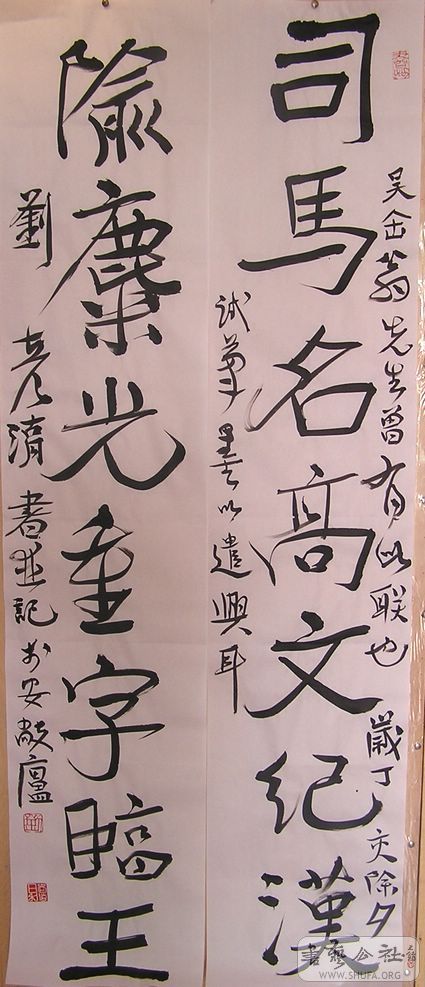 吳缶翁先生曾有此联也 歲丁亥除夕
司馬名高文紀漢
試筆墨以遣興耳
隃麋光重字臨王
劉彦清書並記於安廬
書藝公社
WWW.SHUFA.ORG